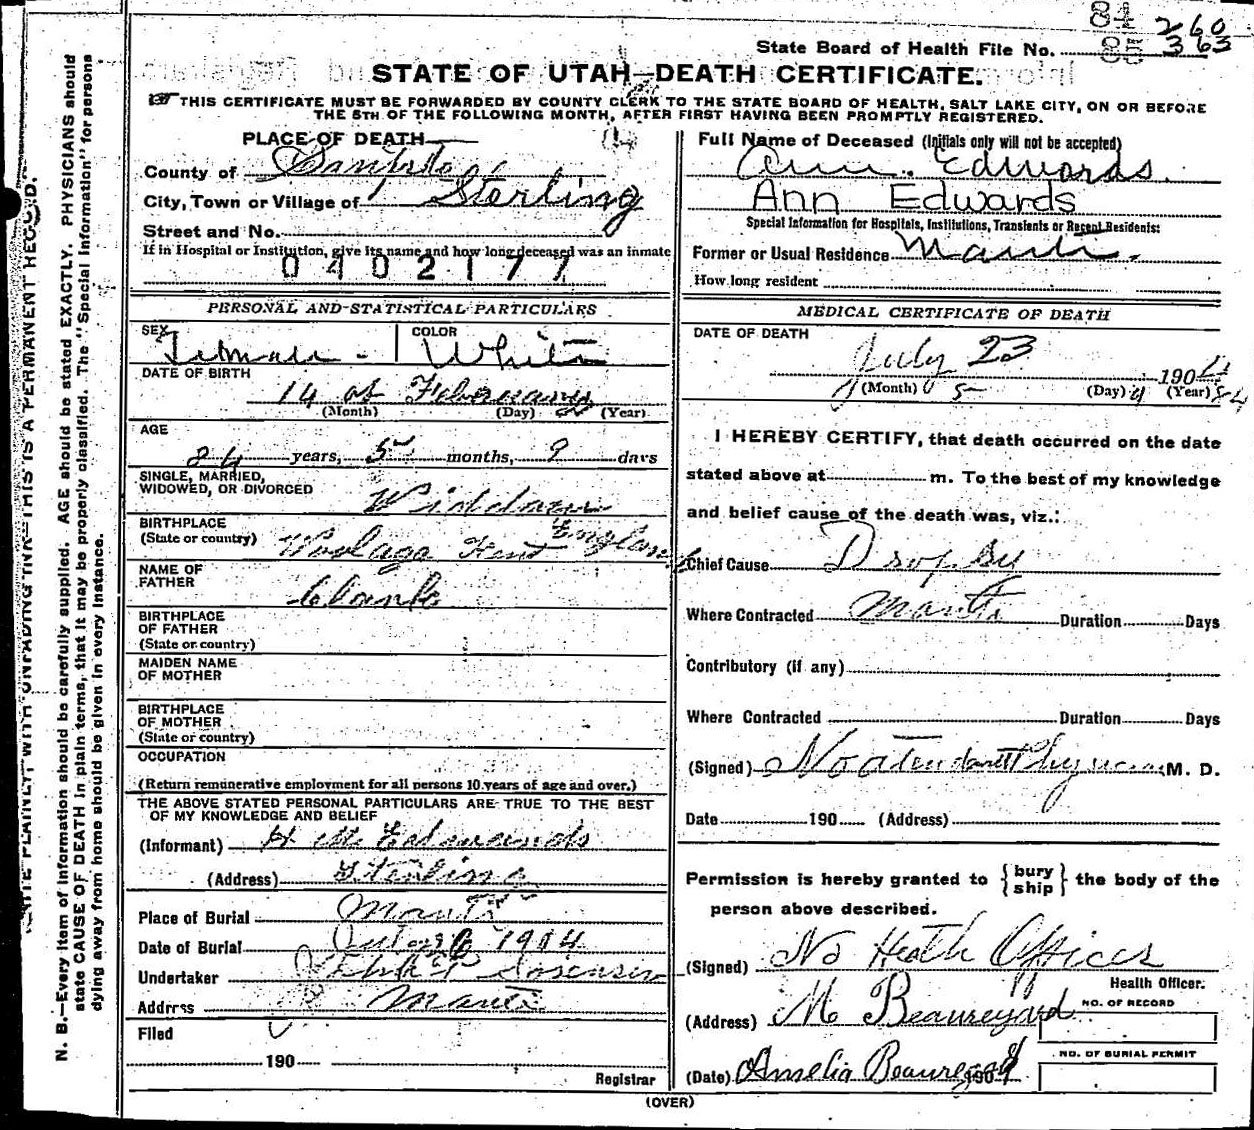 260
363
State Board of Health File No.
STATE OF UTAH—DEATH CERTIFICATE.
THIS CERTIFICATE MUST BE FORWARDED BY COUNTY CLERK TO THE STATE BOARD OF HEALTH, SALT LAKE CITY, ON OR BEFORE
THE 5TH OF THE FOLLOWING MONTH, AFTER FIRST HAVING BEEN PROMPTLY REGISTERED.
PLACE OF DEATH
County of Sanpete
City, Town or Village of Sterling
Street and No.
If in Hospital or Institution, give its name and how long deceased was an inmate
0402177
Full Name of Deceased (Initials only will not be accepted)
Ann Edwards.
Ann Edwards
Special Information for Hospitals, Institutions, Transients or Recent Residents:
Former or Usual Residence Manti.
How long resident
PERSONAL AND STATISTICAL PARTICULARS
SEX
COLOR
White
DATE OF BIRTH
14 of
(Month) (Day) (Year)
AGE
84 years, 5 months, 9 days
SINGLE, MARRIED,
WIDOWED, OR DIVORCED
BIRTHPLACE
(State or country)
Kent England
NAME OF
FATHER
BIRTHPLACE
OF FATHER
(State or country)
MAIDEN NAME
OF MOTHER
BIRTHPLACE
OF MOTHER
(State or country)
OCCUPATION
(Return remunerative employment for all persons 10 years of age and over.)
THE ABOVE STATED PERSONAL PARTICULARS ARE TRUE TO THE BEST
OF MY KNOWLEDGE AND BELIEF
(Informant) H M Edwards
(Address) Sterling
Place of Burial Manti
Date of Burial 1904
Undertaker Sorensen
Address Manti
Filed
190
Registrar
MEDICAL CERTIFICATE OF DEATH
DATE OF DEATH
July 23 1904
(Month) (Day) (Year)
I HEREBY CERTIFY, that death occurred on the date
stated above at m. To the best of my knowledge
and belief cause of the death was, viz.:
Chief Cause Dropsy
Where Contracted Manti Duration Days
Contributory (if any)
Where Contracted Duration Days
(Signed) No M. D.
Date 190 (Address)
Permission is hereby granted to {bury ship} the body of the
person above described.
(Signed) No Heath Officer
Health Officer.
(Address) M Beauregard
NO. OF RECORD
(Date) Amelia Beauregard 1904
NO. OF BURIAL PERMIT
(OVER)
N. B.—Every item of information should be carefully supplied. AGE should be stated EXACTLY. PHYSICIANS should
state CAUSE OF DEATH in plain terms, that it may be properly classified. The "Special Information" for persons
dying away from home should be given in every instance.
THIS IS A PERMANENT RECORD.